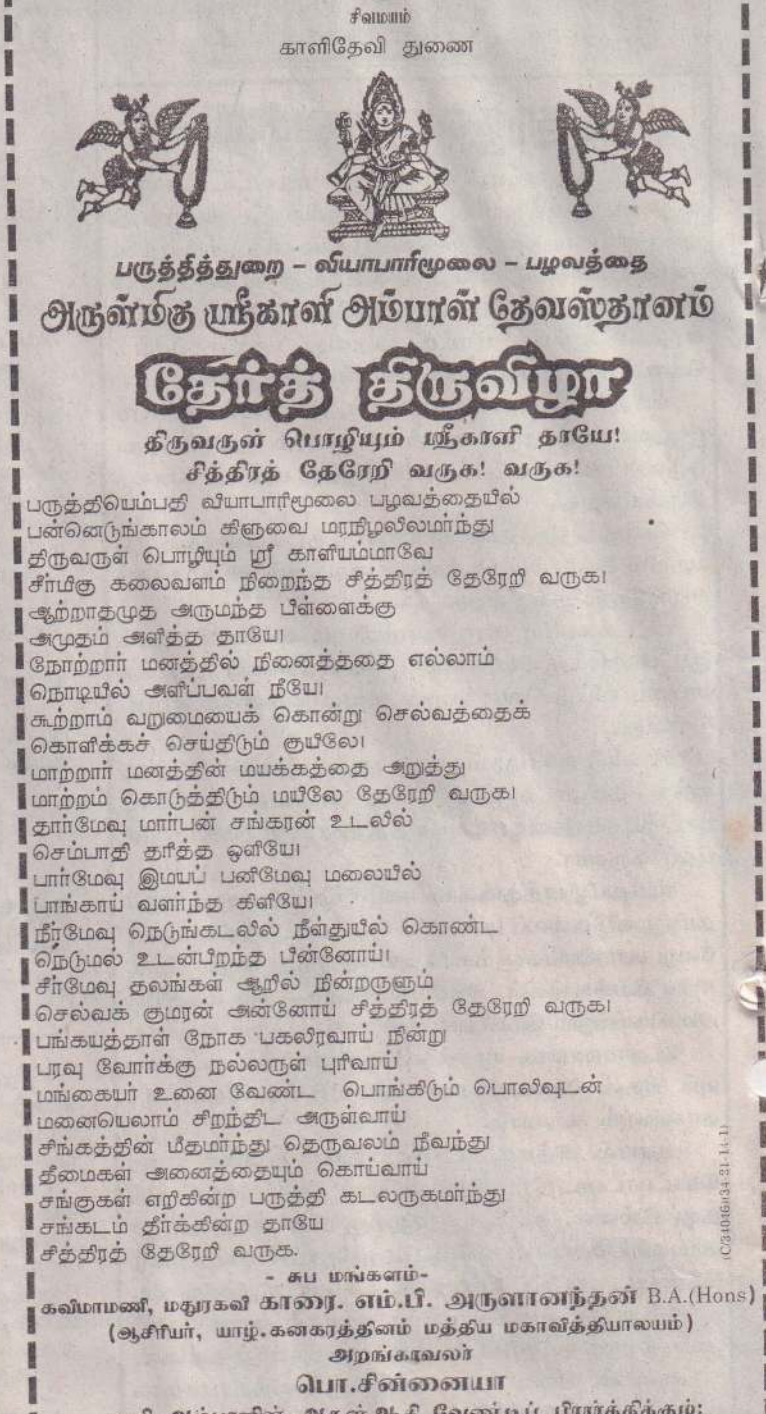 சிவமயம்
காளிதேவி துணை
பருத்தித்துறை – வியாபாரிமூலை – பழவத்தை
அருள்மிகு ஸ்ரீகாளி அம்பாள் தேவஸ்தானம்
தேர்த் திருவிழா
திருவருள் பொழியும் ஸ்ரீகாளி தாயே!
சித்திரத் தேரேறி வருக! வருக!
பருத்தியெம்பதி வியாபாரிமூலை பழவத்தையில்
பன்னெடுங்காலம் கிளுவை மரநிழலிலமர்ந்து
திருவருள் பொழியும் ஸ்ரீ காளியம்மாவே
சீர்மிகு கலைவளம் நிறைந்த சித்திரத் தேரேறி வருக!
ஆற்றாதமுத அருமந்த பிள்ளைக்கு
அமுதம் அளித்த தாயே!
நோற்றார் மனத்தில் நினைத்ததை எல்லாம்
நொடியில் அளிப்பவள் நீயே!
கூற்றாம் வறுமையைக் கொன்று செல்வத்தைக்
கொளிக்கச் செய்திடும் குயிலே!
மாற்றார் மனத்தின் மயக்கத்தை அறுத்து
மாற்றம் கொடுத்திடும் மயிலே தேரேறி வருக!
தார்மேவு மார்பன் சங்கரன் உடலில்
செம்பாதி தரித்த ஒளியே!
பார்மேவு இமயப் பனிமேவு மலையில்
பாங்காய் வளர்ந்த கிளியே!
நீர்மேவு நெடுங்கடலில் நீள்துயில் கொண்ட
நெடுமல் உடன்பிறந்த பின்னோய்!
சீர்மேவு தலங்கள் ஆறில் நின்றருளும்
செல்வக் குமரன் அன்னோய் சித்திரத் தேரேறி வருக!
பங்கயத்தாள் நோக பகலிரவாய் நின்று
பரவு வோர்க்கு நல்லருள் புரிவாய்
மங்கையர் உனை வேண்ட பொங்கிடும் பொலிவுடன்
மனையெலாம் சிறந்திட அருள்வாய்
சிங்கத்தின் மீதமர்ந்து தெருவலம் நீவந்து
தீமைகள் அனைத்தையும் கொய்வாய்
சங்குகள் எறிகின்ற பருத்தி கடலருகமர்ந்து
சங்கடம் தீர்க்கின்ற தாயே
சித்திரத் தேரேறி வருக.
- சுப மங்களம்-
கவிமாமணி, மதுரகவி காரை. எம்.பி. அருளானந்தன் B.A.(Hons)
(ஆசிரியர், யாழ்.கனகரத்தினம் மத்திய மகாவித்தியாலயம்)
அறங்காவலர்
பொ.சின்னையா
அம்பாளின் அருள் ஆசி வேண்டிப் பிரார்த்திக்கும்: